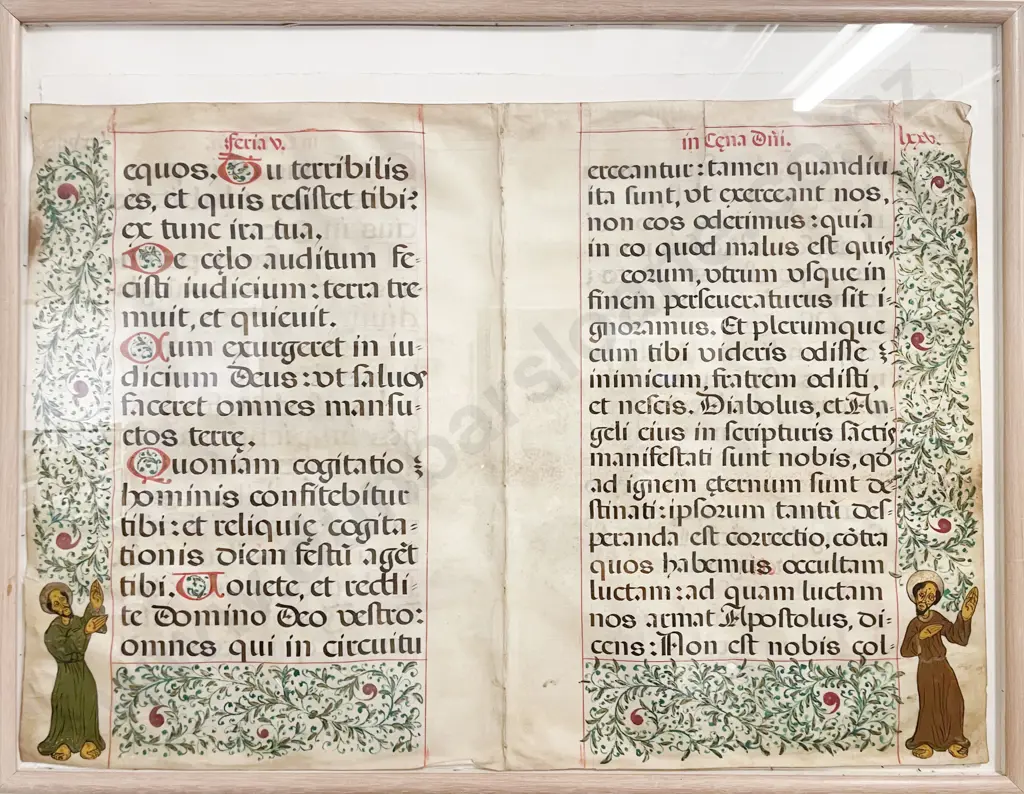 Feria v.
equos. Tu terribilis
es, et quis resistet tibi?
ex tunc ira tua.
De cęlo auditum fe-
cisti iudicium: terra tre-
muit, et quieuit.
Cum exurgeret in iu-
dicium Deus: vt saluos
faceret omnes mansu-
etos terrę.
Quoniam cogitatio
hominis confitebitur
tibi: et reliquię cogita-
tionis diem festũ agẽt
tibi. Uouete, et reddi-
te Domino Deo vestro:
omnes qui in circuitu
in Cęna Dñi.
lxxv.
erceantur: tamen quandiu
ita sunt, vt exerceant nos,
non eos oderimus: quia
in eo quod malus est quis
eorum, vtrum vsque in
finem perseueraturus sit i-
gnoramus. Et plerumque
cum tibi videris odisse
inimicum, fratrem odisti,
et nescis. Diabolus, et An-
geli eius in scripturis sãctis
manifestati sunt nobis, qõ
ad ignem ęternum sunt de-
stinati: ipsorum tantũ des-
peranda est correctio, cõtra
quos habemus occultam
luctam: ad quam luctam
nos armat Apostolus, di-
cens: Non est nobis col-